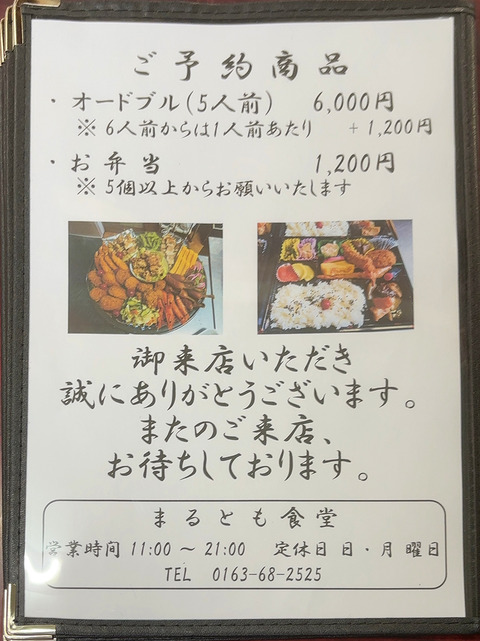 ご予約商品
・オードブル(5人前) 6,000円
※ 6人前からは1人前あたり +1,200円
・お弁当 1,200円
※ 5個以上からお願いいたします
御来店いただき
誠にありがとうございます。
またのご来店、
お待ちしております。
まるとも食堂
営業時間 11:00 〜 21:00 定休日 日・月曜日
TEL 0163-68-2525